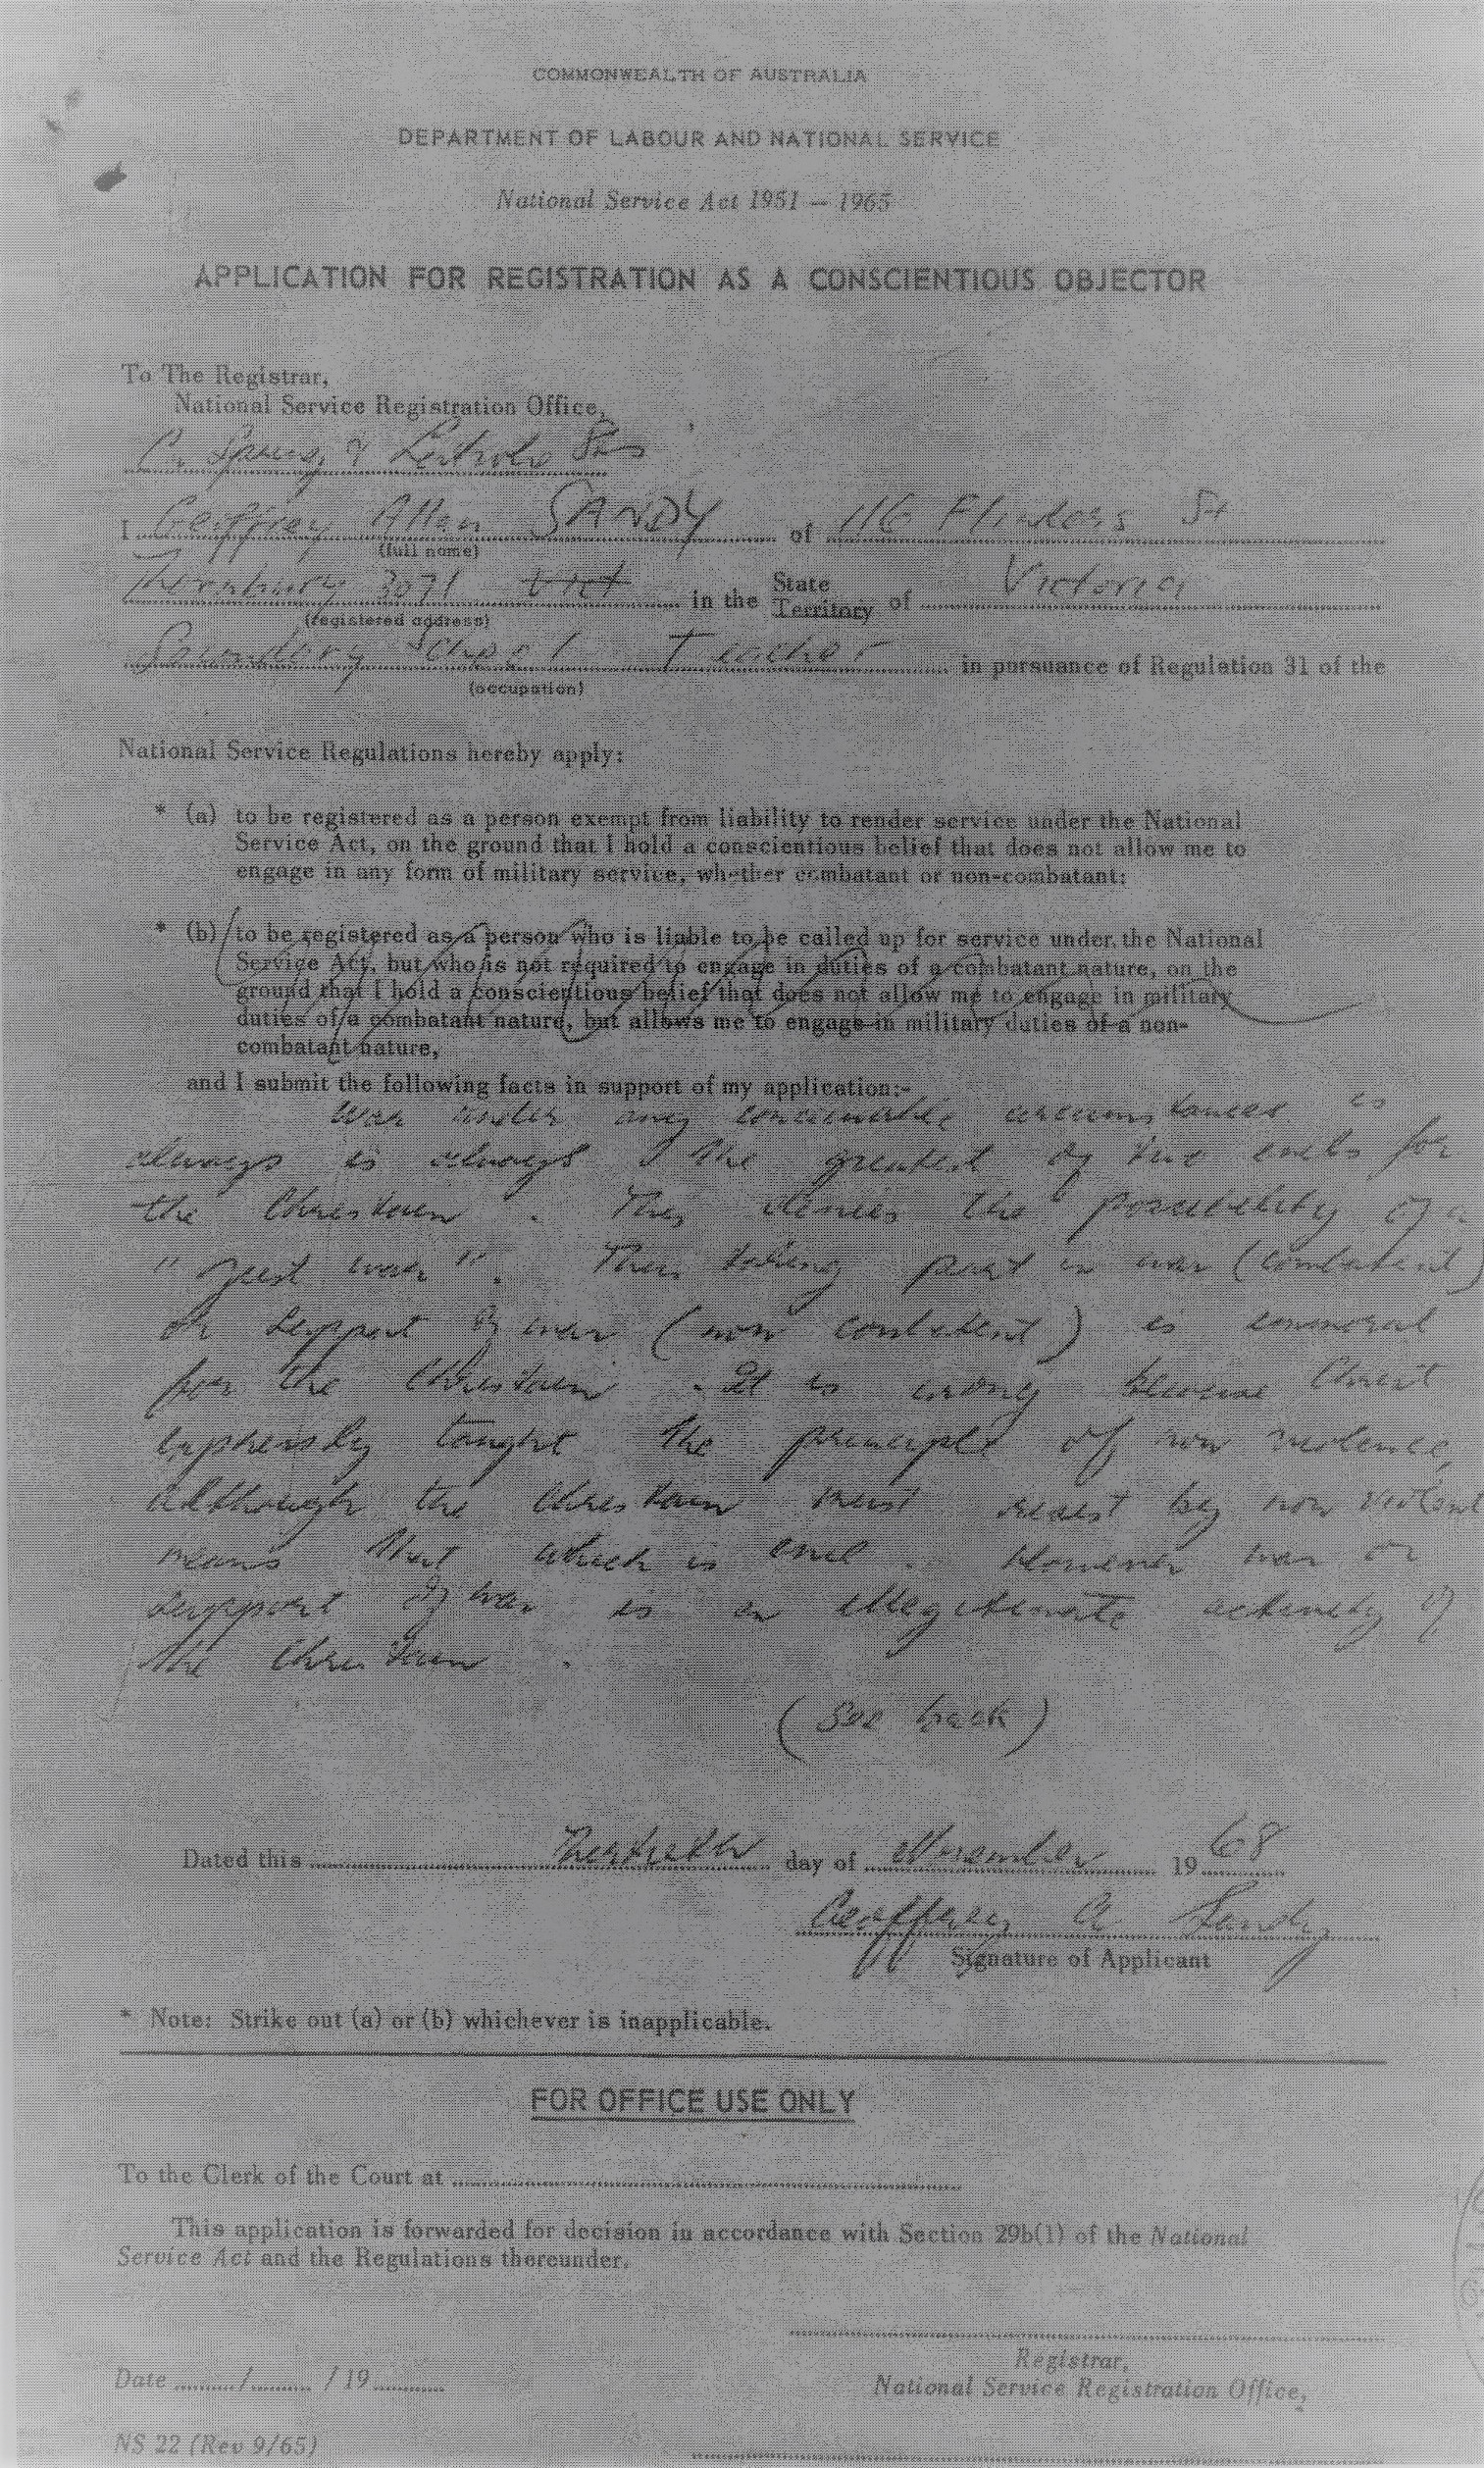 COMMONWEALTH OF AUSTRALIA
DEPARTMENT OF LABOUR AND NATIONAL SERVICE
National Service Act 1951 — 1965
APPLICATION FOR REGISTRATION AS A CONSCIENTIOUS OBJECTOR
To The Registrar,
National Service Registration Office,
Cr Spring & Latrobe Sts
I Geoffrey Allan SANDY of 116 Flinders St
(full name)
Thornbury 3071 Vict in the State Territory of Victoria
(registered address)
Secondary School Teacher in pursuance of Regulation 31 of the
(occupation)
National Service Regulations hereby apply:
* (a) to be registered as a person exempt from liability to render service under the National
Service Act, on the ground that I hold a conscientious belief that does not allow me to
engage in any form of military service, whether combatant or non-combatant:
* (b) to be registered as a person who is liable to be called up for service under the National
Service Act, but who is not required to engage in duties of a combatant nature, on the
ground that I hold a conscientious belief that does not allow me to engage in military
duties of a combatant nature, but allows me to engage in military duties of a non-
combatant nature,
and I submit the following facts in support of my application:-
War under any conceivable circumstances is
always is always the greatest of two evils for
the Christian . This denies the possibility of a
"just war". Thus taking part in war (combatent)
or support of war (non combatent) is immoral
for the Christian . It is wrong because Christ
expressly taught the principle of non violence,
although the Christian must resist by non violent
means that which is evil . However war or
support of war is an illegitimate activity of
the Christian .
(See back)
Dated this Thirtieth day of November 19 68
Geoffrey A Sandy
Signature of Applicant
* Note: Strike out (a) or (b) whichever is inapplicable.
FOR OFFICE USE ONLY
To the Clerk of the Court at
This application is forwarded for decision in accordance with Section 29b(1) of the National
Service Act and the Regulations thereunder.
Registrar,
Date / /19
National Service Registration Office,
NS 22 (Rev 9/65)